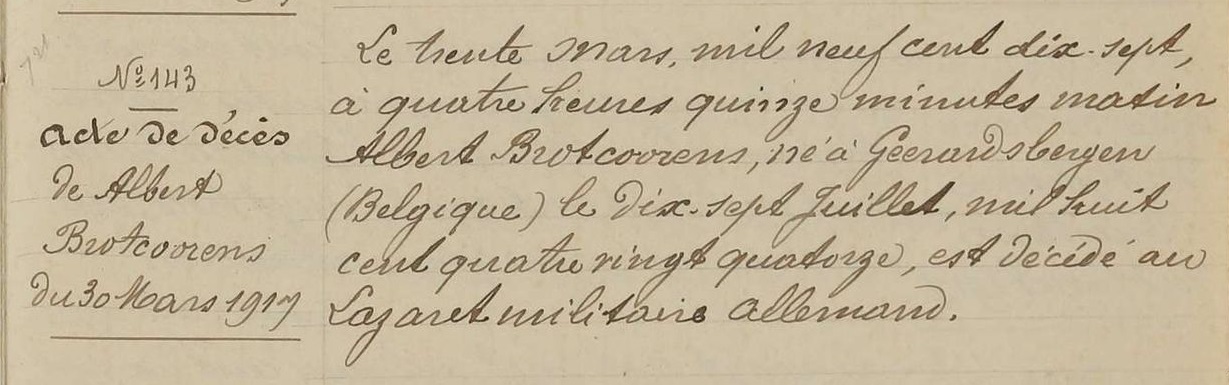 Nº 143
acte de décès
de Albert
Brotcoorens
du 30 Mars 1917
Le trente Mars, mil neuf cent dix-sept,
à quatre heures quinze minutes matin
Albert Brotcoorens, né à Geerardsbergen
(Belgique) le dix-sept Juillet, mil huit
cent quatre vingt quatorze, est décédé au
Lazaret militaire allemand.